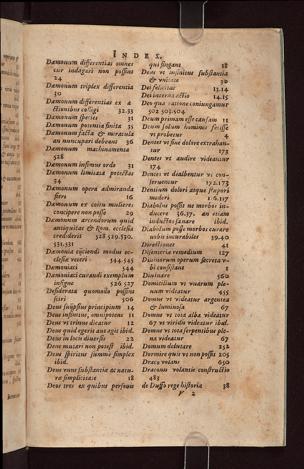 INDEX.
Dæmonum differentias omnes
cur indagari non possint
24
Dæmonum triplex differentia
30
Dæmonum differentias ex a
ctionibus colligi 32.33
Dæmonum species 31
Dæmonum potentia finita 35
Dæmonum facta & miracula
an nuncupari debeant 36
Dæmonum machinamenta
528
Dæmonum infimus ordo 31
Dæmonum limitata potestas
34
Dæmonum opera admiranda
fieri 16
Dæmonum ex coitu mulieres
concipere non posse 29
Dæmonum arcendorum quid
antiquitas & Rom. ecclesia
crediderit 528.529.530.
531.532
Dæmonia eijciendi modus ec-
clesiæ veteri 544.545
Dæmoniaci 544
Dæmoniaci curandi exemplum
insigne 526.527
Desiderata quomodo possint
sciri 506
Deus suijpsius principium 14
Deus infinitus, omnipotens 11
Deus vt trinus dicatur 12
Deus quid egerit ante agit ibid.
Deus in locis diuersis 22
Deus mutari non potest ibid.
Deus spiritus summe simplex
ibid.
Deus vnus substantia ac natu-
ra simplicitate 18
Deus tres ex quibus personis
qui fingant 18
Deus vt infinitus substantia
& vnitate 30
Dei felicitas 13.14
Dei interna actio 14.15
Deo qua ratione coniungamur
502.503.504
Deum primam esse causam 11
Deum solum hominis fecisse
vt probetur 4
Dentes vt sine dolore extrahan-
tur 173
Dentes vt audire videantur
174
Dentes vt dealbentur vt con-
seruentur 172.173
Dentium dolori atque stupori
mederi 116.117
Diabolus possit ne morbos in-
ducere 36.37. an etiam
inductos sanare ibid.
Diabolum posse morbos curare
nobis incurabiles 39.40
Directiones 41
Dysenteriæ remedium 127
Distinarum operum secreta v-
bi consistant 1
Diuinare 560
Domicilium vt vuarum ple-
num videatur 455
Domus vt videatur argentea
& luminosa 67
Domus vt tota alba videatur
67 vt viridis videatur ibid.
Domus vt tota serpentibus ple-
na videatur 67
Domum delutare 252
Dormire quis vt non possit 205
Draco volans 650
Draconis volantis constructio
483
de Duffo rege historia 38
V 2